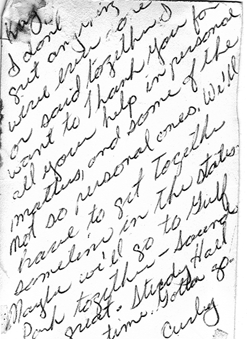 I don't
get anything
we've ever done
or said together. I
want to thank you for
all your help in personal
matters, and some of the
not so personal ones. We'll
have to get together
sometime in the States.
Maybe we'll go to Gulf
Park together - sound
great. Study Hall
time. Gotta go.
Curley